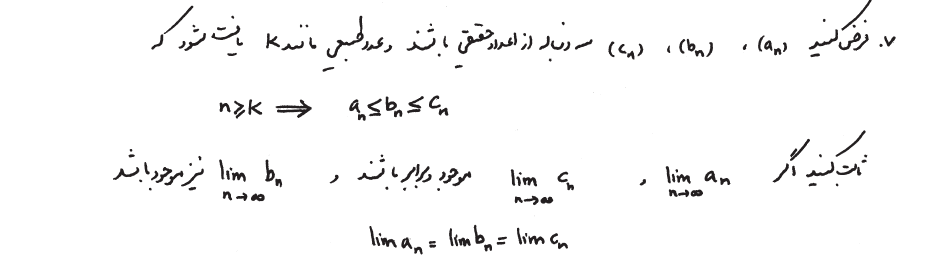 ۷. فرض کنید (aₙ) ، (bₙ) ، (cₙ) سه دنباله از اعداد حقیقی باشند و عدد طبیعی مانند k یافت شود که
n ⩾ k ⟹ aₙ ≤ bₙ ≤ cₙ
ثابت کنید اگر lim_{n→∞} aₙ ، lim_{n→∞} cₙ موجود و برابر باشند ، lim_{n→∞} bₙ نیز موجود باشد
lim aₙ = lim bₙ = lim cₙ